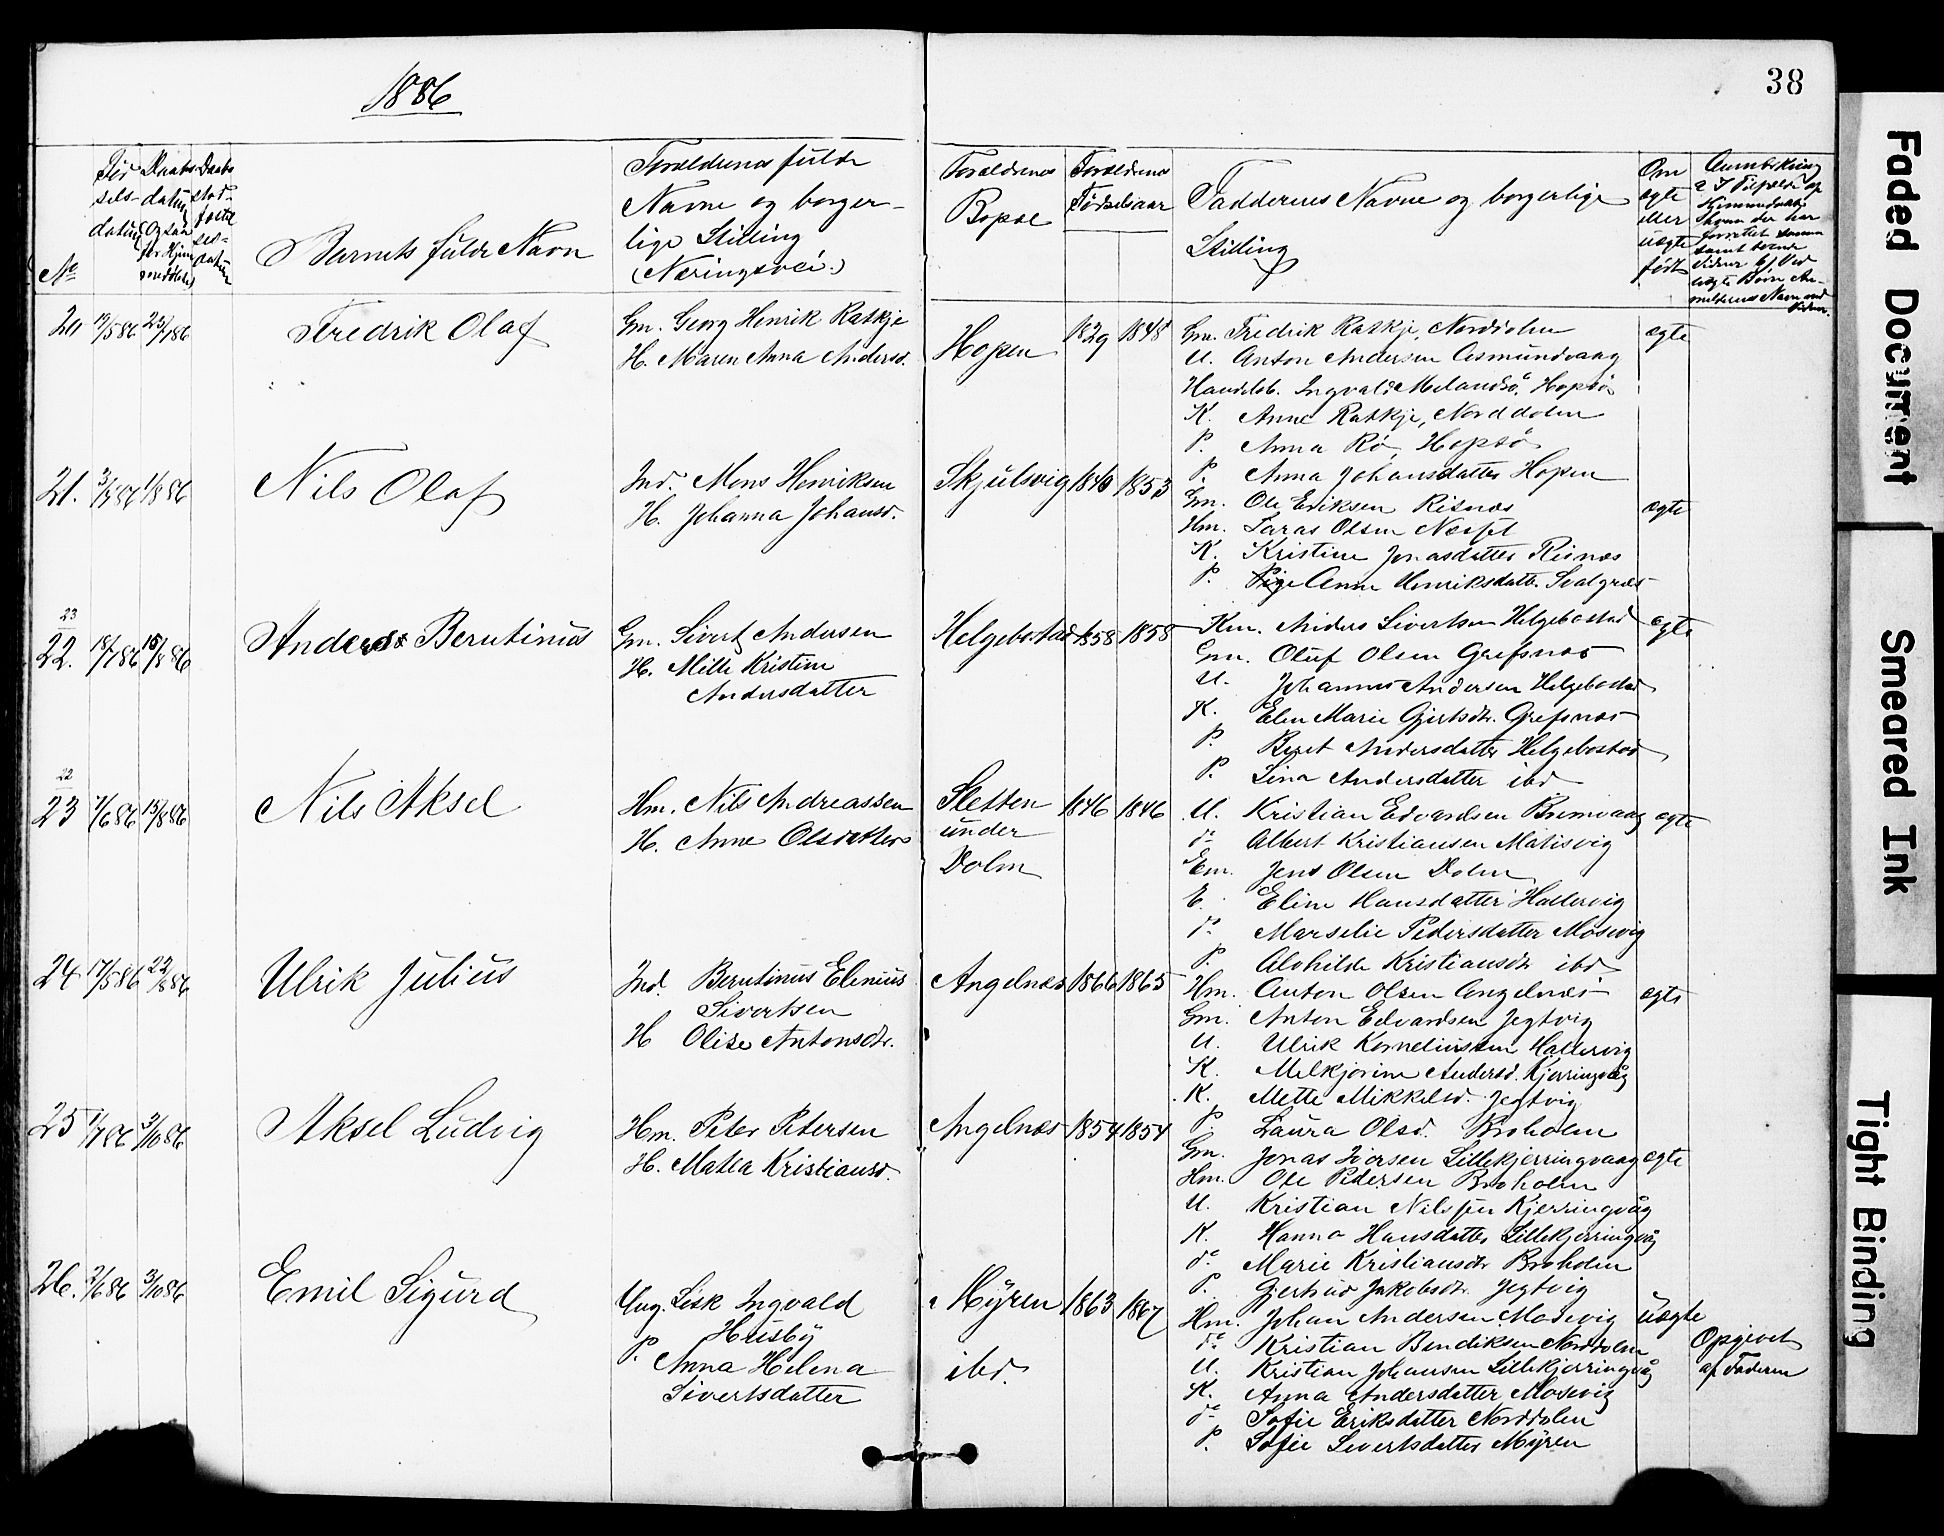 1886
38
Nº
Fød
sels-
datum
Daabs-
datum
Daabs
sted
Barnets fulde Navn
Forældrenes fulde
Navne og borger-
lige Stilling
(Næringsvei.)
Forældrenes
Bopæl
Forældrenes
Fødselsaar
Faddernes Navne og borgerlige
Stilling
Om
ægte
eller
uægte
født
20 86 86 Fredrik Olaf
Gm. Georg Henrik Ratkje
H. Maren Anna Andersd.
Hopen 1829 1848
Gm. Fredrik Ratkje, Norddolm
U. Anton Andersen Asmundvaag
Handelsb. Ingvald Melandsø, Hopsø
K. Anne Ratkje, Norddolm
P. Anna Rø, Hopsø
P. Anna Johansdatter Hopen
ægte
21. 86 1/8 86 Nils Olaf
Ind. Mons Henriksen
H. Johanna Johansd.
Skjulsvig 1840 1853
Gm. Ole Eriksen Risnæs
Hm. Laras Olsen Næsset
K. Kristine Jonasdatter Risnæs
P. Pige Anne Henriksdatt. Svalgræs
ægte
23
22. 18/7 86 15/8 86 Anders Berntinus
Gm. Sivert Andersen
H. Mille Kristine
Andersdatter
Helgebostad 1858 1858
Km. Anders Sivertsen Helgebostad
Gm. Oluf Olsen Grefsnæs
U. Johannes Andersen Helgebostad
K. Elen Marie Gjertsdr. Grefsnæs
P. Beret Andersdatter Helgebostad
P. Lina Andersdatter ibd
ægte
22
23 7/6 86 15/8 86 Nils Aksel
Hm. Nils Andreassen
H. Anne Olsdatter
Sletten
under
Dolm
1846 1846
U. Kristian Edvardsen Bremvaag
dº Albert Kristiansen Matisvig
Em. Jens Olsen Dolm
E. Eline Hansdatter Hallervig
dº Marselie Pedersdatter Mosevig
P. Alvhilde Kristiansdr ibd
ægte
24 17/5 86 22/8 86 Ulrik Julius
Ind. Berntinus Elenius
Sivertsen
H Olise Antonsdr.
Angelnæs 1866 1865
Hm. Anton Olsen Angelnæs
Gm. Anton Edvardsen Jegtvig
U. Ulrik Korneliussen Hallervig
K. Melkjorine Andersd. Kjerringvåg
K. Mette Mikkelsd. Jegtvig
P. Laura Olsd. Broholm
ægte
25 1/7 86 3/10 86 Aksel Ludvig
Hm. Peter Petersen
H. Matea Kristiansd.
Angelnæs 1854 1854
Gm. Jonas Iversen Lillekjerringvaag
Hm. Ole Pedersen Broholm
U. Kristian Nilssen Kjerringvåg
K. Hanna Hansdatter Lillekjerringvåg
dº Marie Kristiansdr Broholm
P. Gjertrud Jakobsdr. Jegtvig
ægte
26. 2/6 86 3/10 86 Emil Sigurd
Ung. Lisk Ingvald
Husby
P. Anna Helena
Sivertsdatter
Myren
ibd.
1863 1867
Hm. Johan Andersen Mosevig
dº Kristian Bendiksen Norddolm
U. Kristian Johansen Lillekjerringvåg
K. Anna Andersdatter Mosevig
dº Sofie Eriksdatter Norddolm
P. Sofie Sivertsdatter Myren
uægte
Opgivet
af Faderen
Faded Document
Smeared Ink
Tight Binding